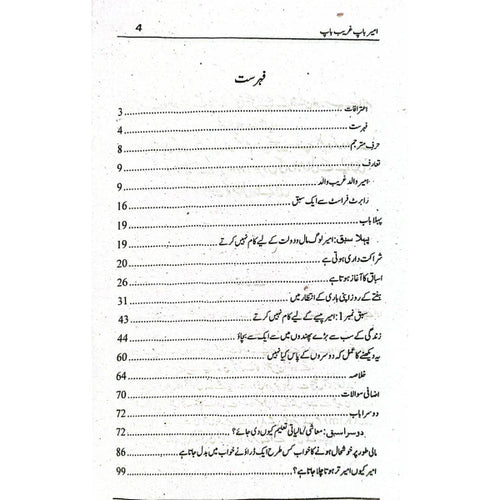 امیر باپ غریب باپ 4
فہرست
اعترافات 3
فہرست 4
حرف مترجم 8
تعارف 9
امیر والد غریب والد 9
رابرٹ فراسٹ سے ایک سبق 16
پہلا باب 19
پہلا سبق: امیر لوگ مال و دولت کے لیے کام نہیں کرتے 19
شراکت داری ہوتی ہے 20
اسباق کا آغاز ہوتا ہے 26
ہفتے کے روز اپنی باری کے انتظار میں 31
سبق نمبر 1: امیر پیسے کے لیے کام نہیں کرتے 43
زندگی کے سب سے بڑے پھندوں میں سے ایک سے بچاؤ 44
یہ دیکھنے کا عمل کہ دوسروں کے پاس کیا نہیں 60
خلاصہ 64
اضافی سوالات 70
دوسرا باب 72
دوسرا سبق: معاشی/مالیاتی تعلیم کیوں دی جائے؟ 72
مالی طور پر خوشحال ہونے کا خواب کس طرح ایک ڈراؤنے خواب میں بدل جاتا ہے 86
امیر کیوں امیر تر ہوتا چلا جاتا ہے؟ 99